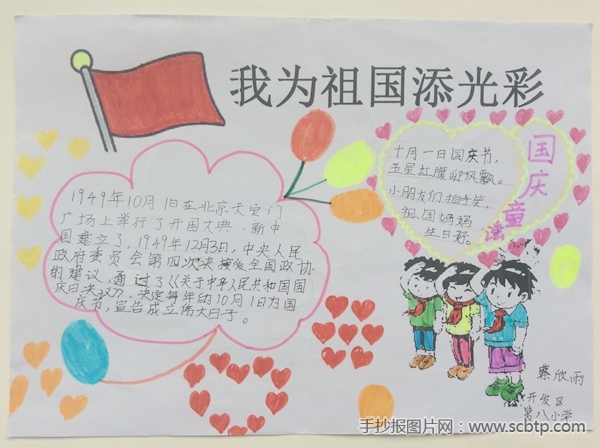 我为祖国添光彩
1949年10月1日在北京天安门
广场上举行了开国大典,新中
国建立了,1949年12月3日,中央人民
政府委员会第四次 全国政协
的建议,通过了《关于中华人民共和国国
庆日 决定每年的10月1日为国
庆节,宣告成立伟大日子。
十月一日国庆节,
五星红旗迎风飘。
小朋友们拍手笑,
祖国妈妈
生日好。
国庆童谣
蔡欣雨
开发区
第八小学
手抄报图片网-www.scbtp.com